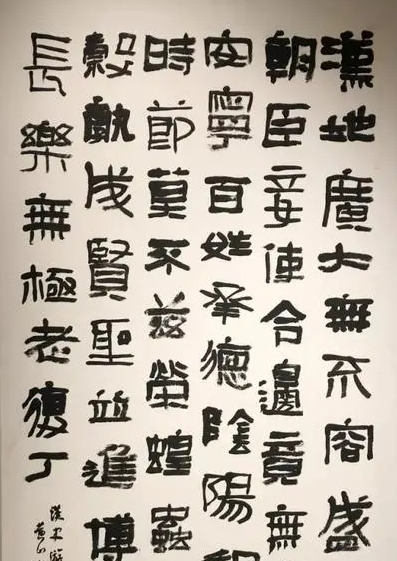 漢地廣大無不容盛
朝臣妾使令邊竟無
安寧百姓承德陰陽
時節莫不茲榮蝗蟲
穀孰成賢聖並進博
長樂無極老復丁